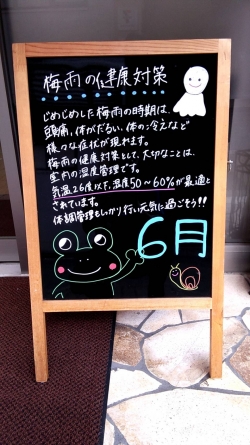 梅雨の健康対策
じめじめした梅雨の時期は、
頭痛、体がだるい、体の冷えなど
様々な症状が現れます。
梅雨の健康対策として、大切なことは、
室内の湿度管理です。
気温26度以下、湿度50～60%が最適と
されています。
体調管理もしっかり行い元気に過ごそう!!
6月